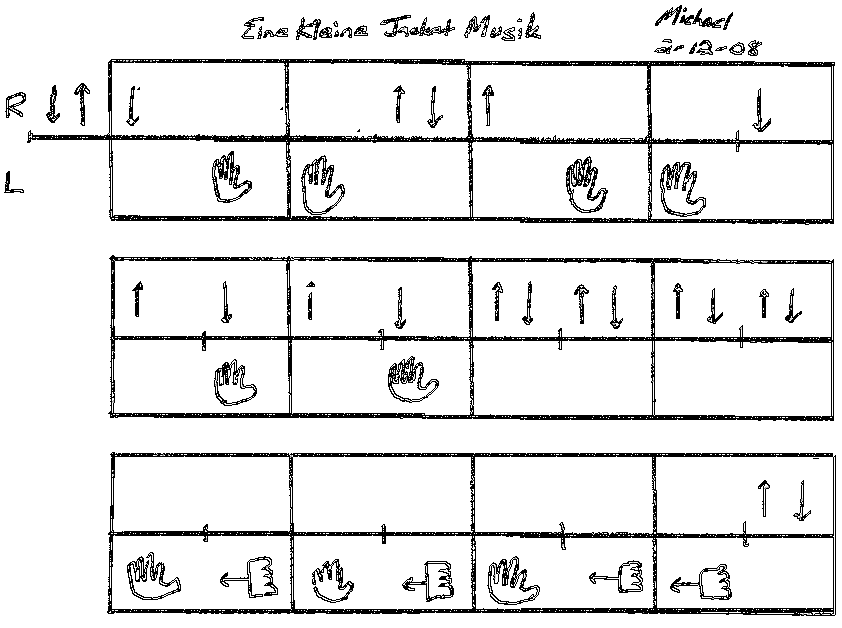 Eine Kleine Jacket Musik
Michael
2-12-08
R
L